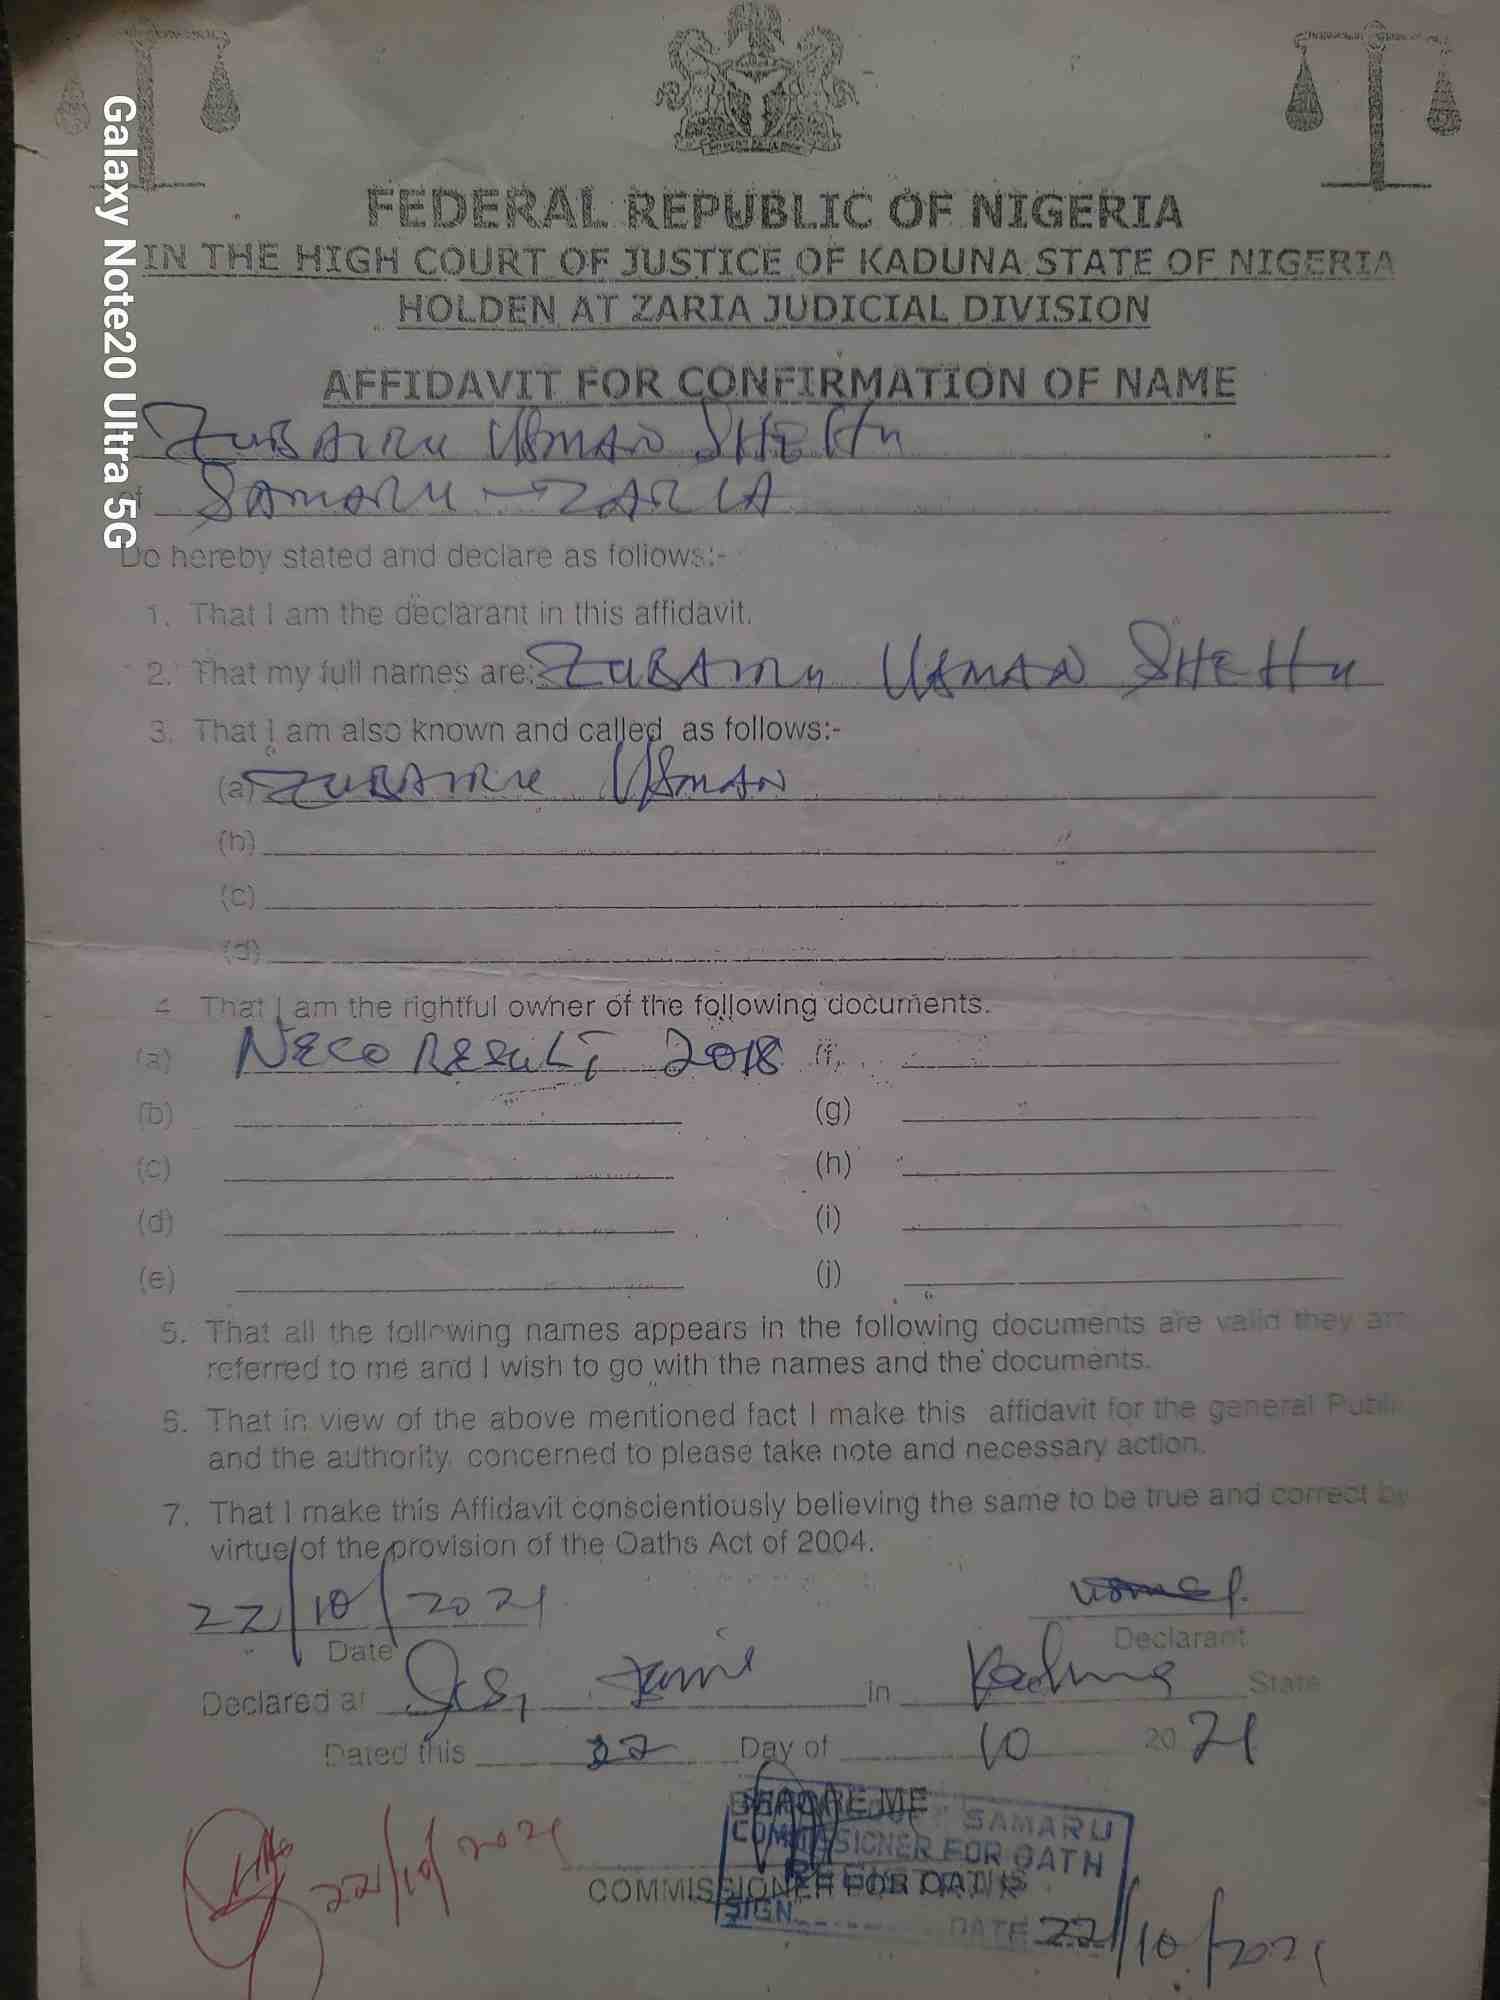 FEDERAL REPUBLIC OF NIGERIA
IN THE HIGH COURT OF JUSTICE OF KADUNA STATE OF NIGERIA
HOLDEN AT ZARIA JUDICIAL DIVISION
AFFIDAVIT FOR CONFIRMATION OF NAME
ZUBAIRU USMAN SHEHU
of SAMARU - ZARIA
Do hereby stated and declare as follows:-
1. That I am the declarant in this affidavit.
2. That my full names are: ZUBAIRU USMAN SHEHU
3. That I am also known and called as follows:-
(a) ZUBAIRU USMAN
(b)
(c)
(d)
4 That I am the rightful owner of the following documents.
(a) NECO RESULT 2018 (f)
(b) (g)
(c) (h)
(d) (i)
(e) (j)
5. That all the following names appears in the following documents are valid they are
referred to me and I wish to go with the names and the documents.
6. That in view of the above mentioned fact I make this affidavit for the general Public
and the authority, concerned to please take note and necessary action.
7. That I make this Affidavit conscientiously believing the same to be true and correct by
virtue of the provision of the Oaths Act of 2004.
22/10/2021
Date Declarant
Declared at in Kaduna State
Dated this 22 Day of 10 2021
BEFORE ME
SAMARU
COMMISSIONER FOR OATH
COMMISSIONER FOR OATHS
SIGN DATE 22/10/2021
22/10/2021
Galaxy Note20 Ultra 5G